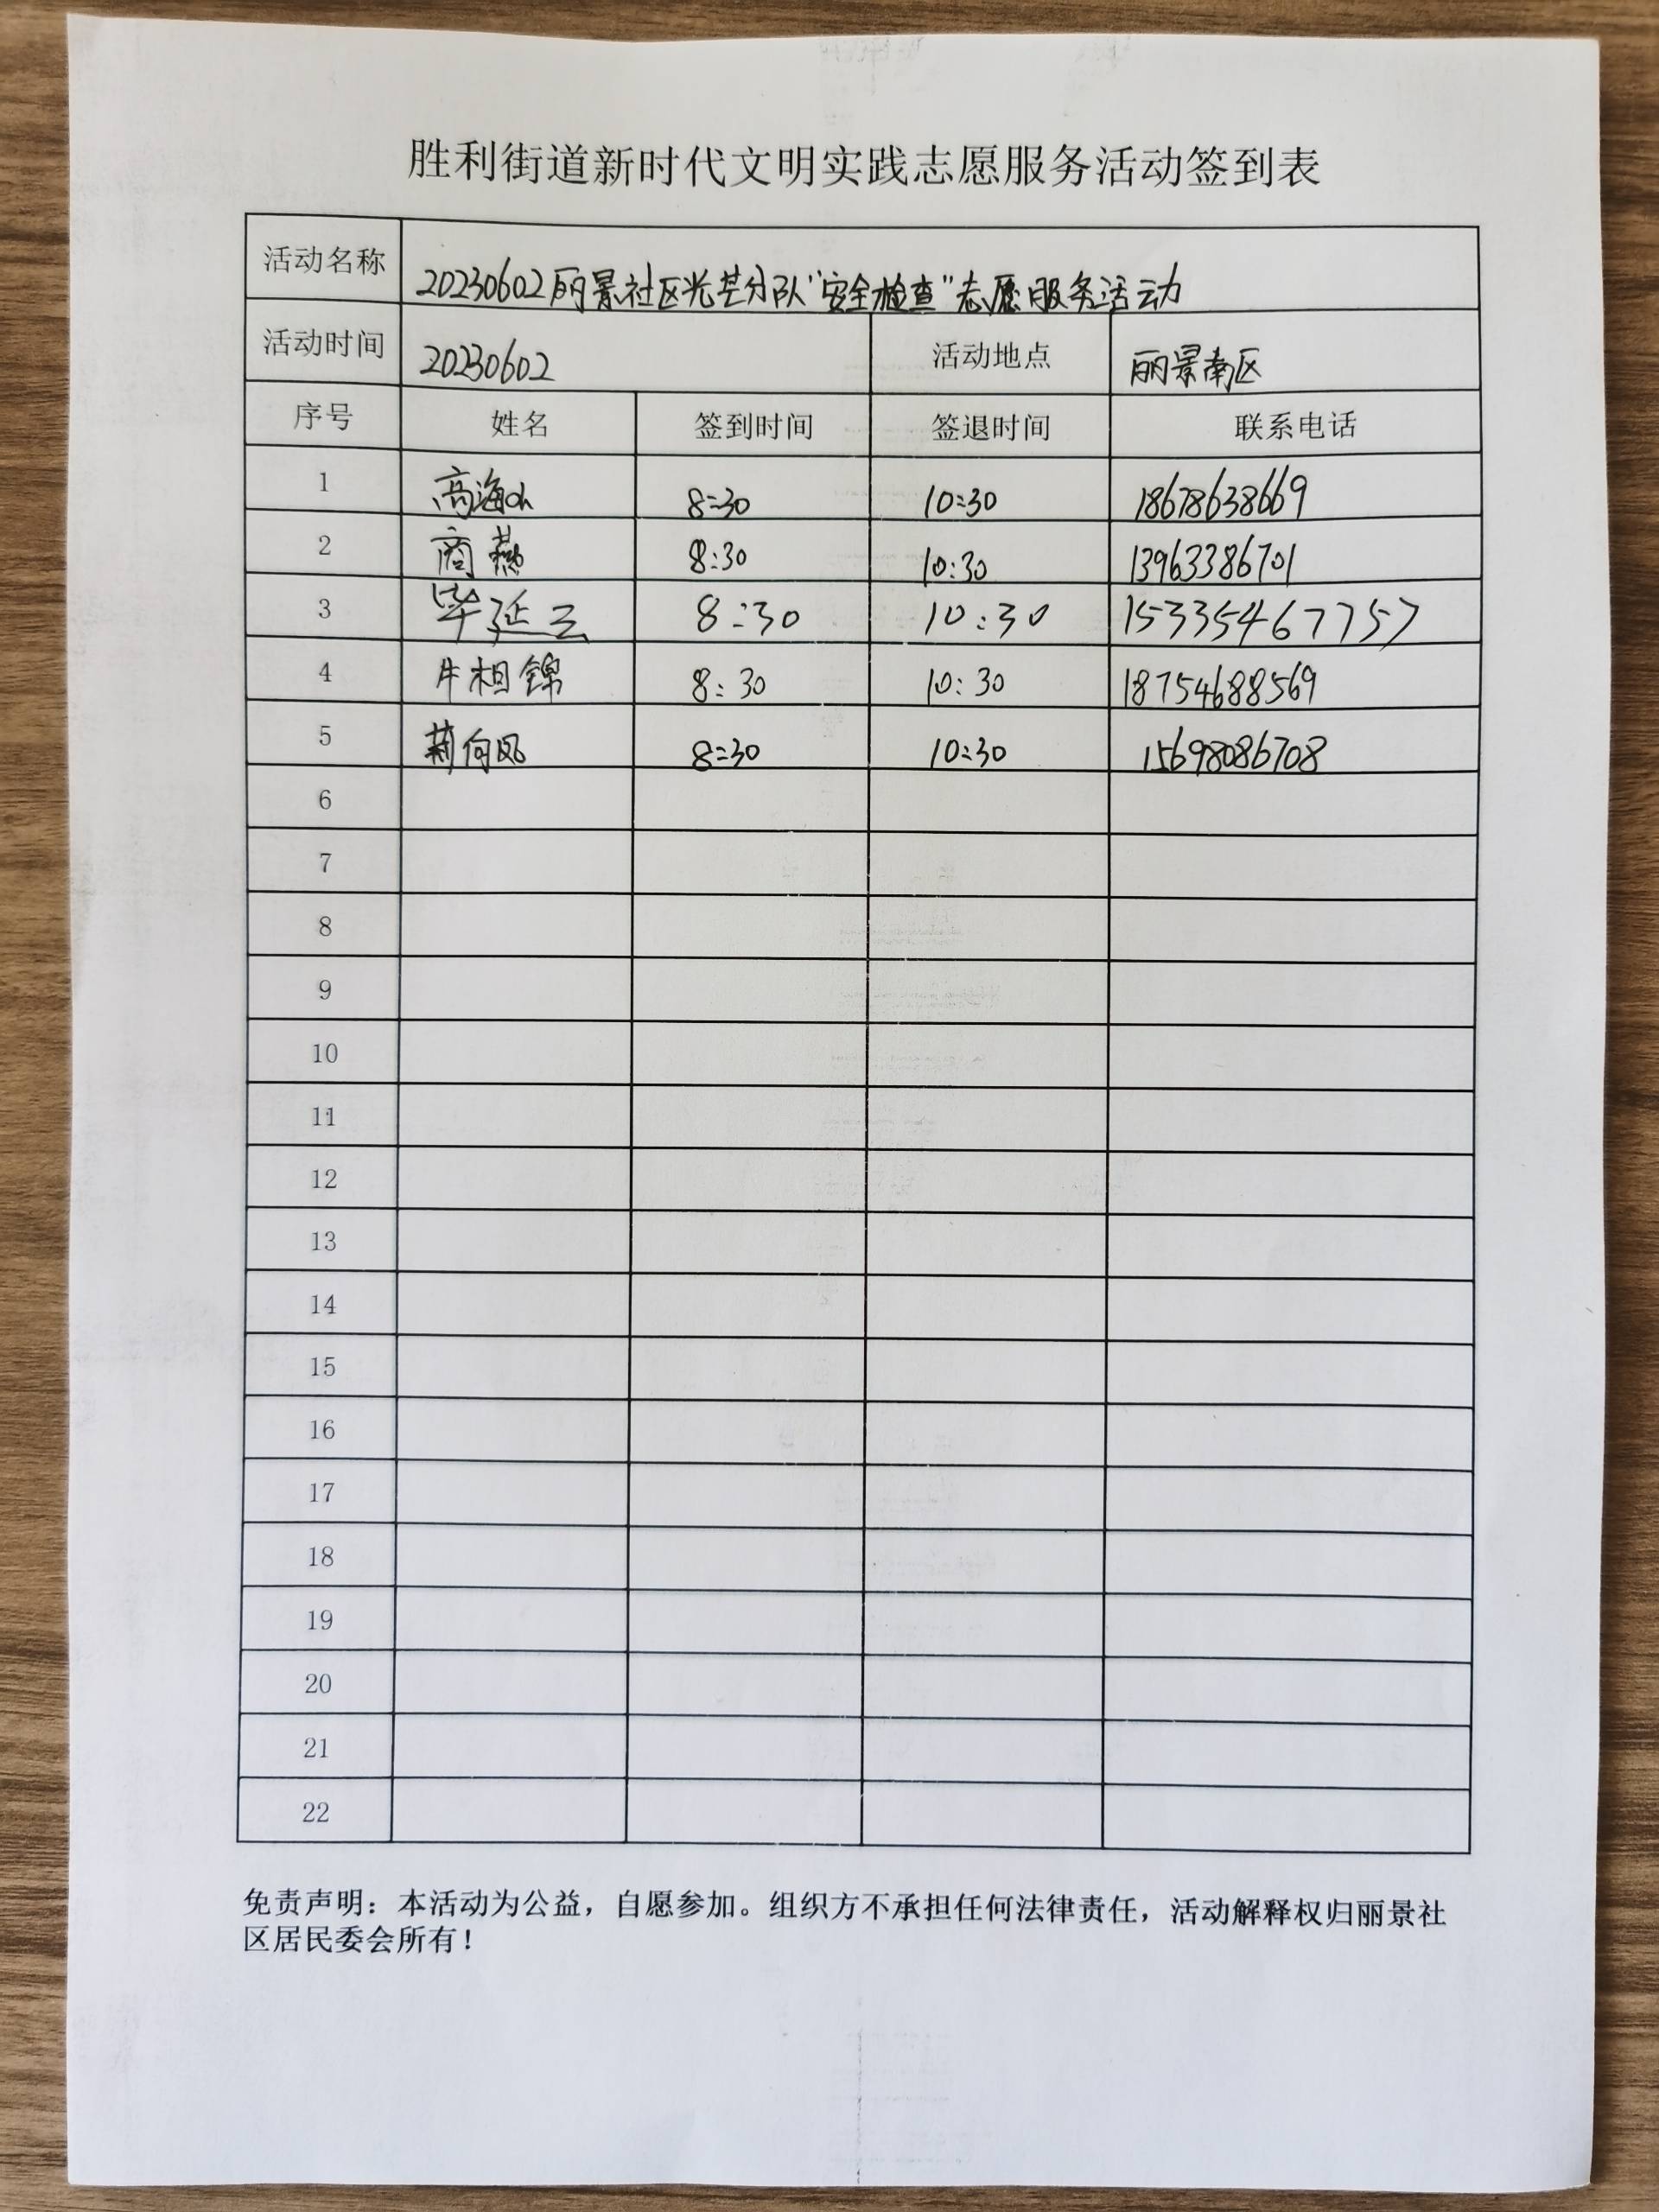 胜利街道新时代文明实践志愿服务活动签到表
活动名称 20230602丽景社区光芒分队"安全检查"志愿服务活动
活动时间 20230602 活动地点 丽景南区
序号 姓名 签到时间 签退时间 联系电话
1 高海 8:30 10:30 18678638669
2 商燕 8:30 10:30 13963386701
3 毕延云 8:30 10:30 15335467757
4 牛相锦 8:30 10:30 18754688569
5 荆向风 8:30 10:30 15698086708
6
7
8
9
10
11
12
13
14
15
16
17
18
19
20
21
22
免责声明：本活动为公益，自愿参加。组织方不承担任何法律责任，活动解释权归丽景社
区居民委会所有！